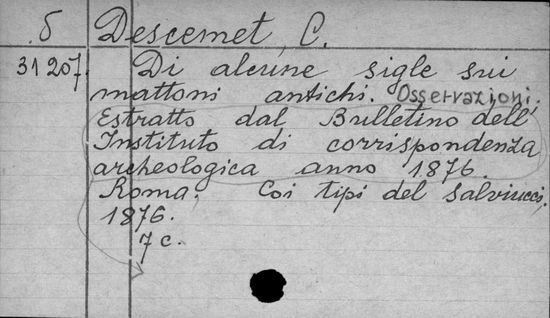 б Descemet, C.
31207. Di alcune sigle sui
mattoni antichi. Osservazioni.
Estratto dal Bulletino dell'
Instituto di corrispondenza
archeologica anno 1876.
Roma. Coi tipi del Salviucci,
1876.
7 c.